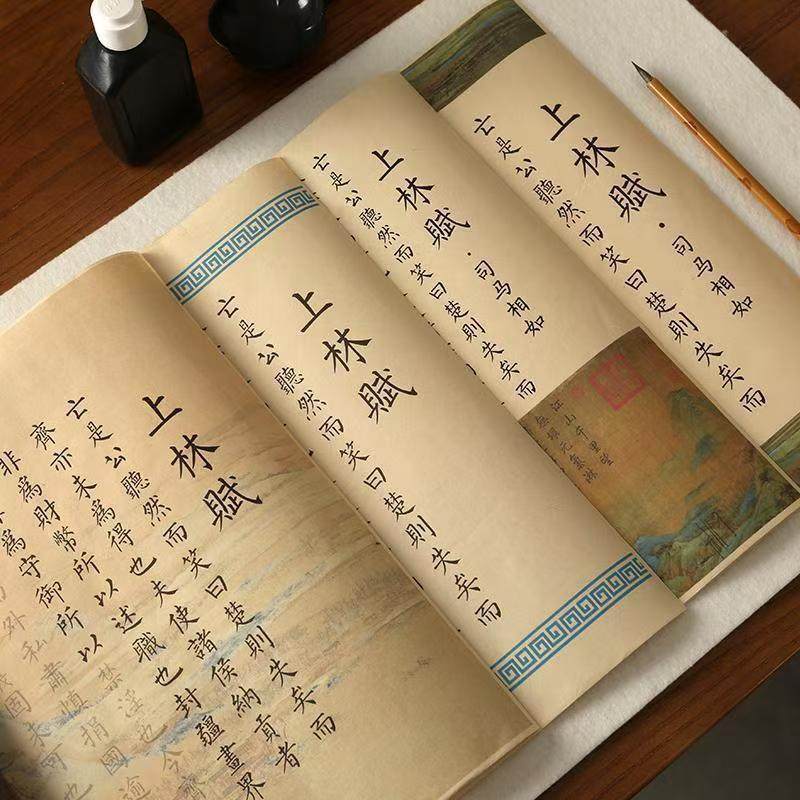 上林賦·司马相如
亡是公聽然而笑曰楚則失矣而
上林賦·司马相如
亡是公聽然而笑曰楚則失矣而
江山千里望
無垠元氣淋
上林賦
亡是公聽然而笑曰楚則失矣而
上林賦
亡是公聽然而笑曰楚則失矣而
齊亦未為得也夫使諸侯納貢者
非為財幣所以述職也封疆畫界
為守御所以禁淫也今齊
外私肅慎捐國
固未可也